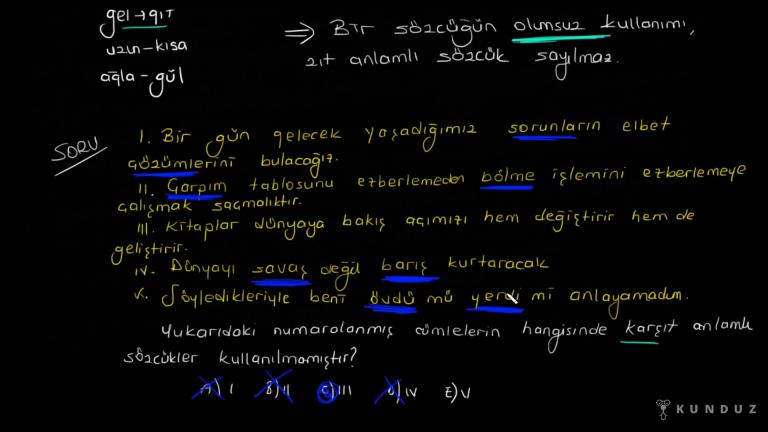 gel → git
uzun - kısa
ağla - gül
⇒ Bir sözcüğün olumsuz kullanımı,
zıt anlamlı sözcük sayılmaz.
SORU
I. Bir gün gelecek yaşadığımız sorunların elbet
çözümlerini bulacağız.
II. Çarpım tablosunu ezberlemeden bölme işlemini ezberlemeye
çalışmak saçmalıktır.
III. Kitaplar dünyaya bakış açımızı hem değiştirir hem de
geliştirir.
IV. Dünyayı savaş değil barış kurtaracak
V. Söyledikleriyle beni övdü mü yerdi mi anlayamadım.
Yukarıdaki numaralanmış cümlelerin hangisinde karşıt anlamlı
sözcükler kullanılmamıştır?
A) I B) II C) III D) IV E) V
KUNDUZ